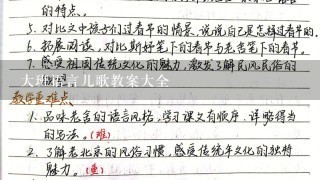 的特点。
5. 对比文中孩子们过春节的情景,说说自己是怎样过春节的。
6. 拓展阅读,对比斯好笔下的春节与老舍笔下的春节。
7. 感受祖国传统文化的魅力,激发了解民风民俗的
大班语言儿歌教案大全
教学重难点
1. 品味老舍的语言风格,学习课文有顺序、详略得当
的写法。(难)
2. 了解老北京的风俗习惯,感受传统年文化的独特
魅力。(重)